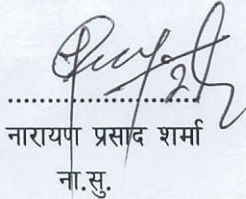 नारायण प्रसाद शर्मा
ना.सु.